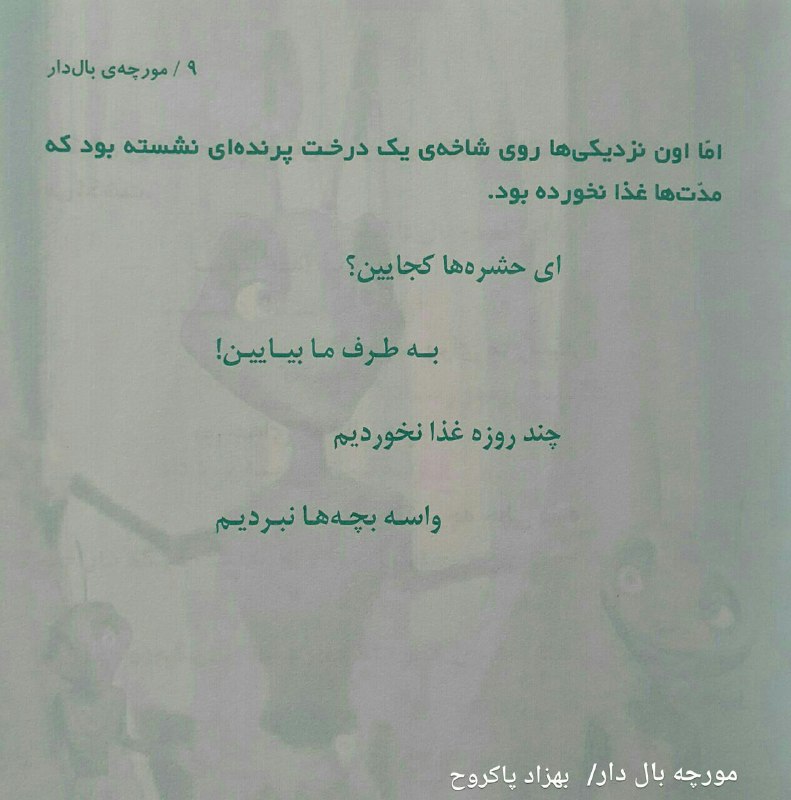 ۹ / مورچه‌ی بال‌دار
امّا اون نزدیکی‌ها روی شاخه‌ی یک درخت پرنده‌ای نشسته بود که
مدّت‌ها غذا نخورده بود.
ای حشره‌ها کجایین؟
به طرف ما بیایین!
چند روزه غذا نخوردیم
واسه بچه‌ها نبردیم
مورچه بال دار/ بهزاد پاکروح